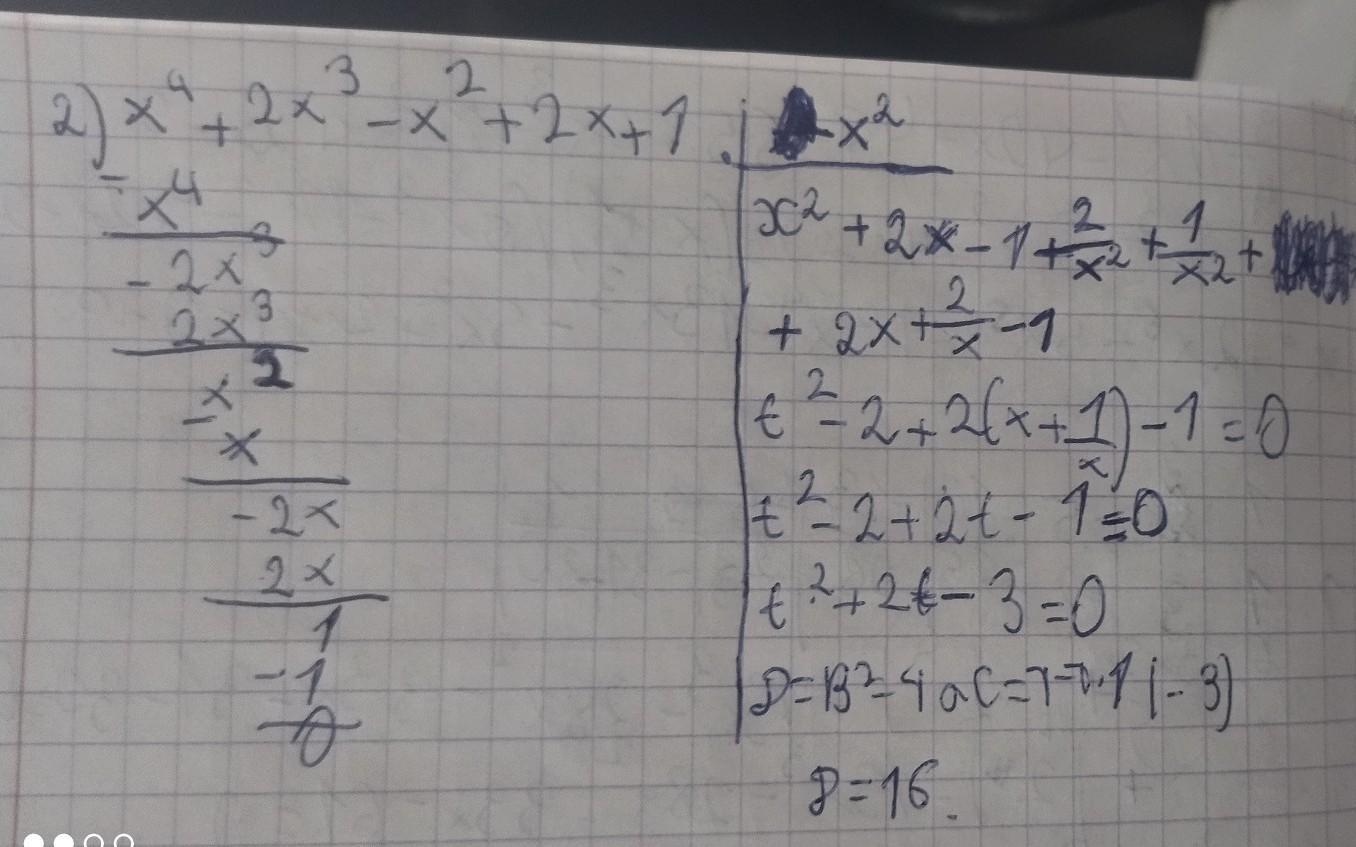 2) x⁴ + 2x³ - x² + 2x + 1
- x⁴
- 2x³
2x³
- x²
x
- 2x
2x
1
- 1
0
- x²
x² + 2x - 1 + 2/x² + 1/x² +
+ 2x + 2/x - 1
t² - 2 + 2(x + 1/x) - 1 = 0
t² - 2 + 2t - 1 = 0
t² + 2t - 3 = 0
D = B² - 4ac = 4 - 4·1(-3)
D = 16.